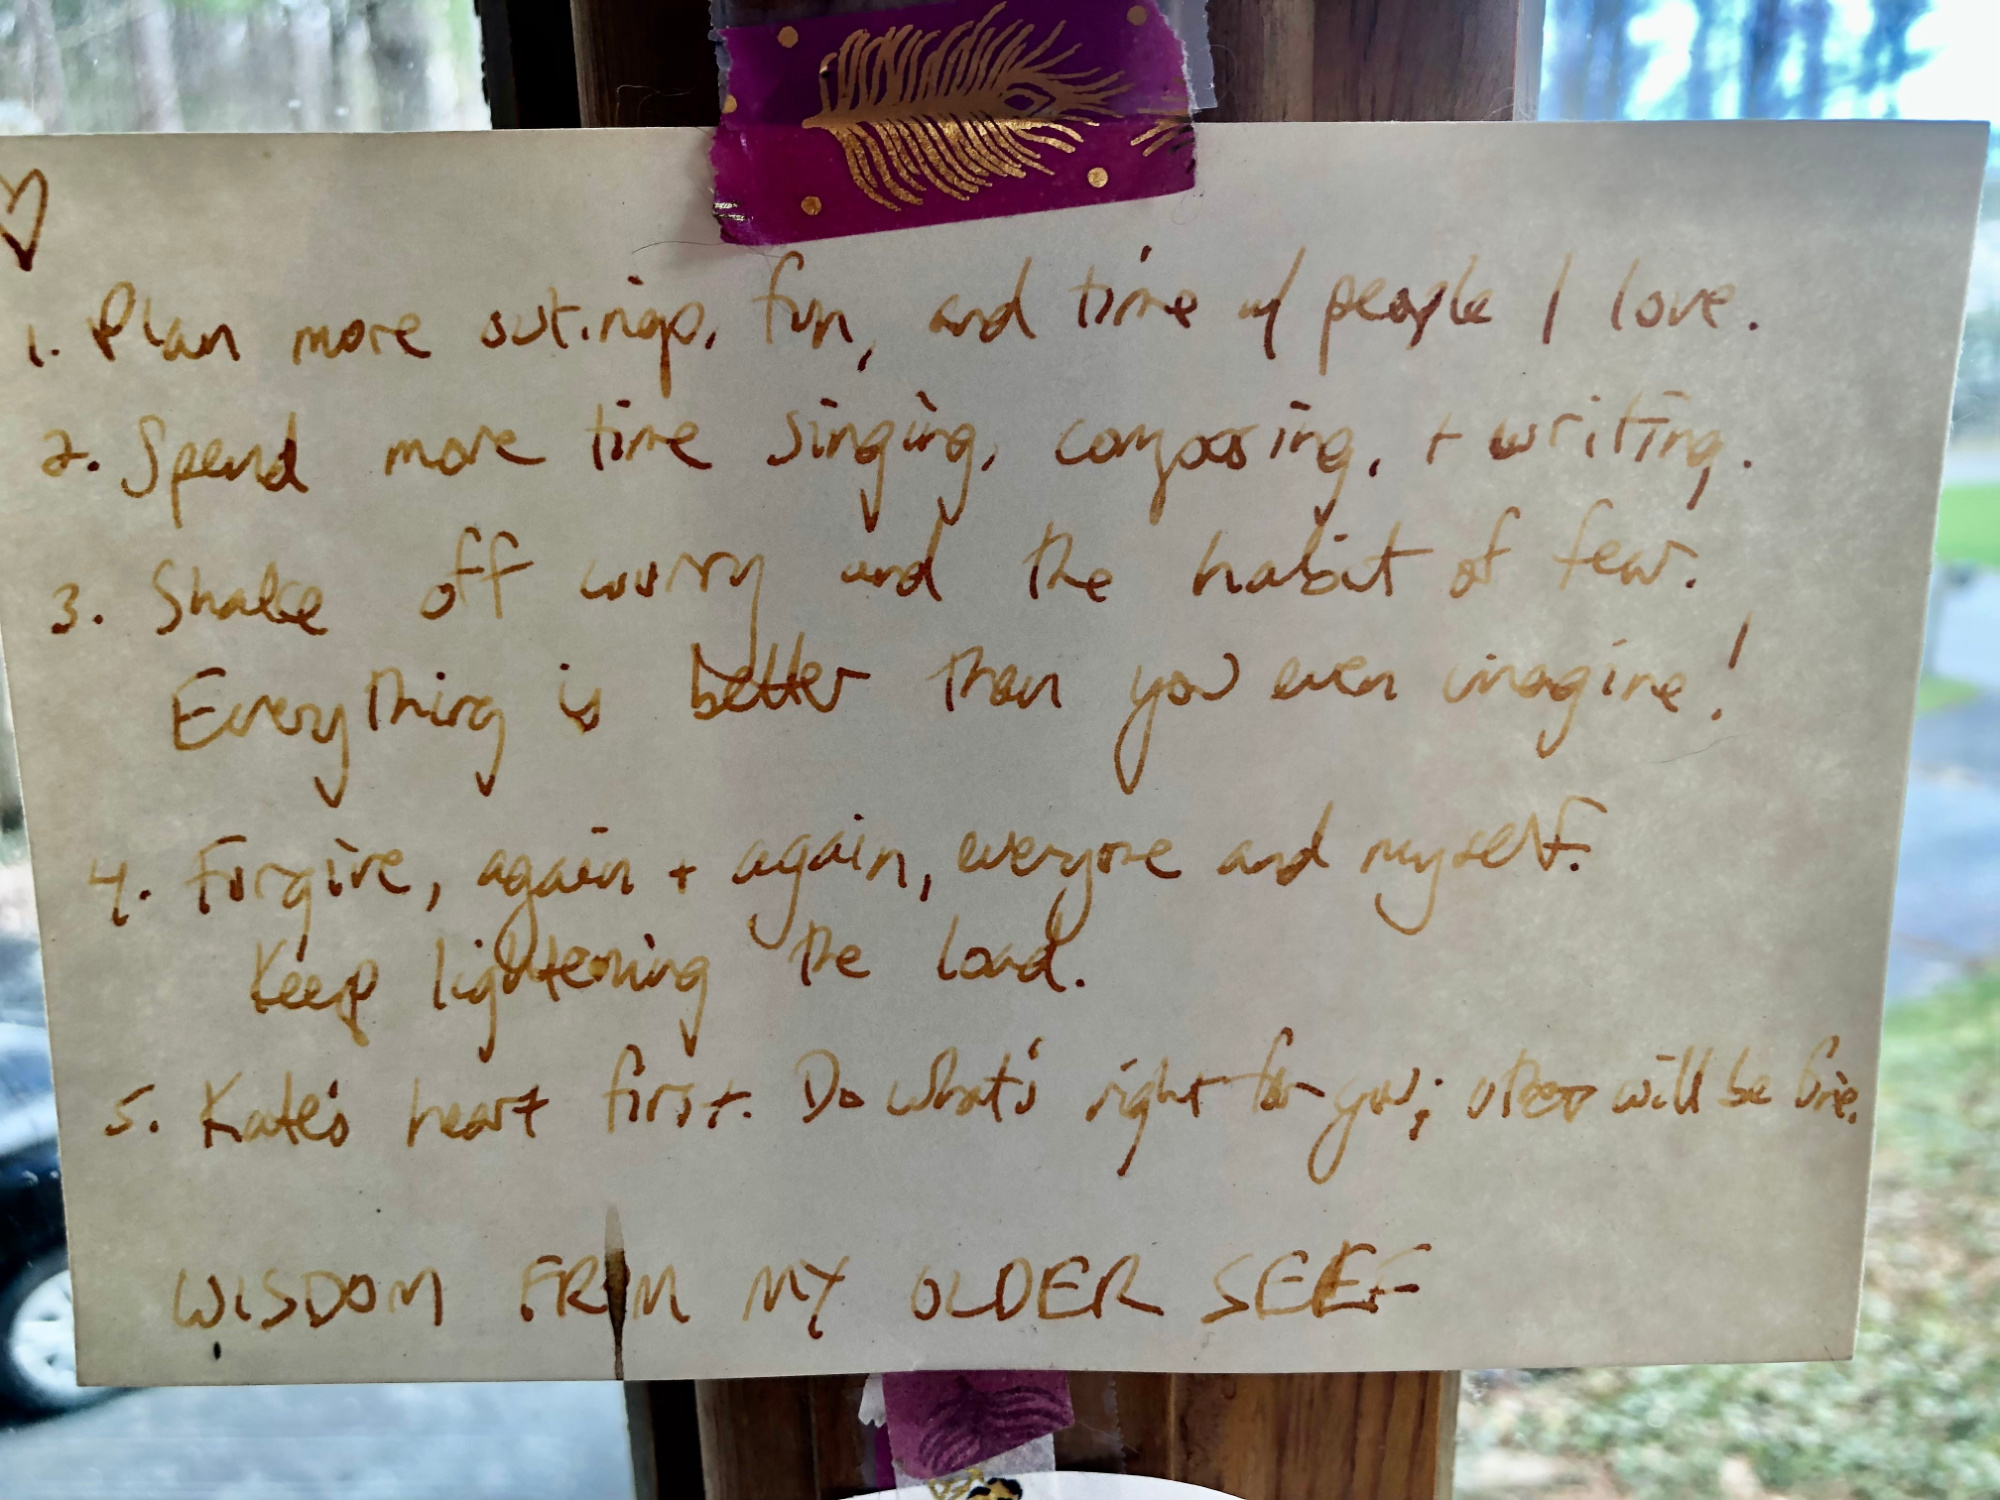 1. Plan more outings, fun, and time w/ people I love.
2. Spend more time singing, composing, + writing.
3. Shake off worry and the habit of fear.
Everything is better than you even imagine!
4. Forgive, again + again, everyone and myself.
Keep lightening the load.
5. Kate's heart first. Do what's right for you; others will be fine.
WISDOM FROM MY OLDER SELF